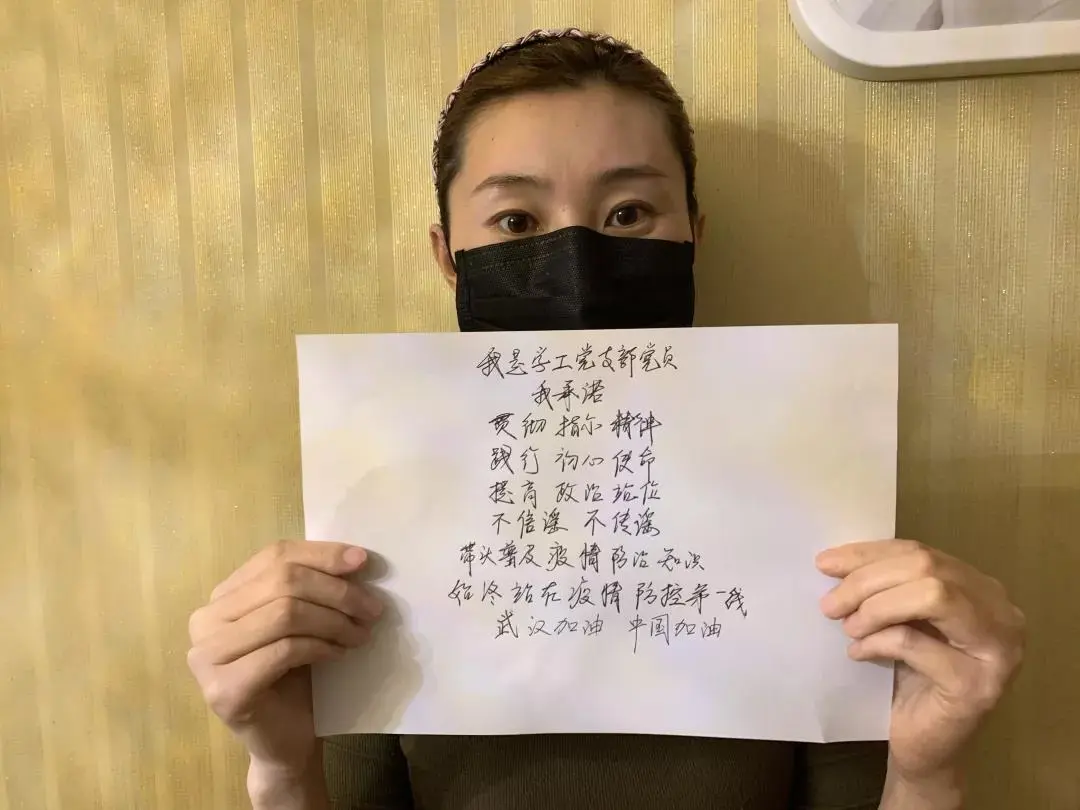 我是学工党支部党员
我承诺
贯彻 指示 精神
践行 初心 使命
提高 政治 站位
不信谣 不传谣
带头普及 疫情 防治 知识
始终 站在 疫情 防控第一线
武汉加油 中国加油